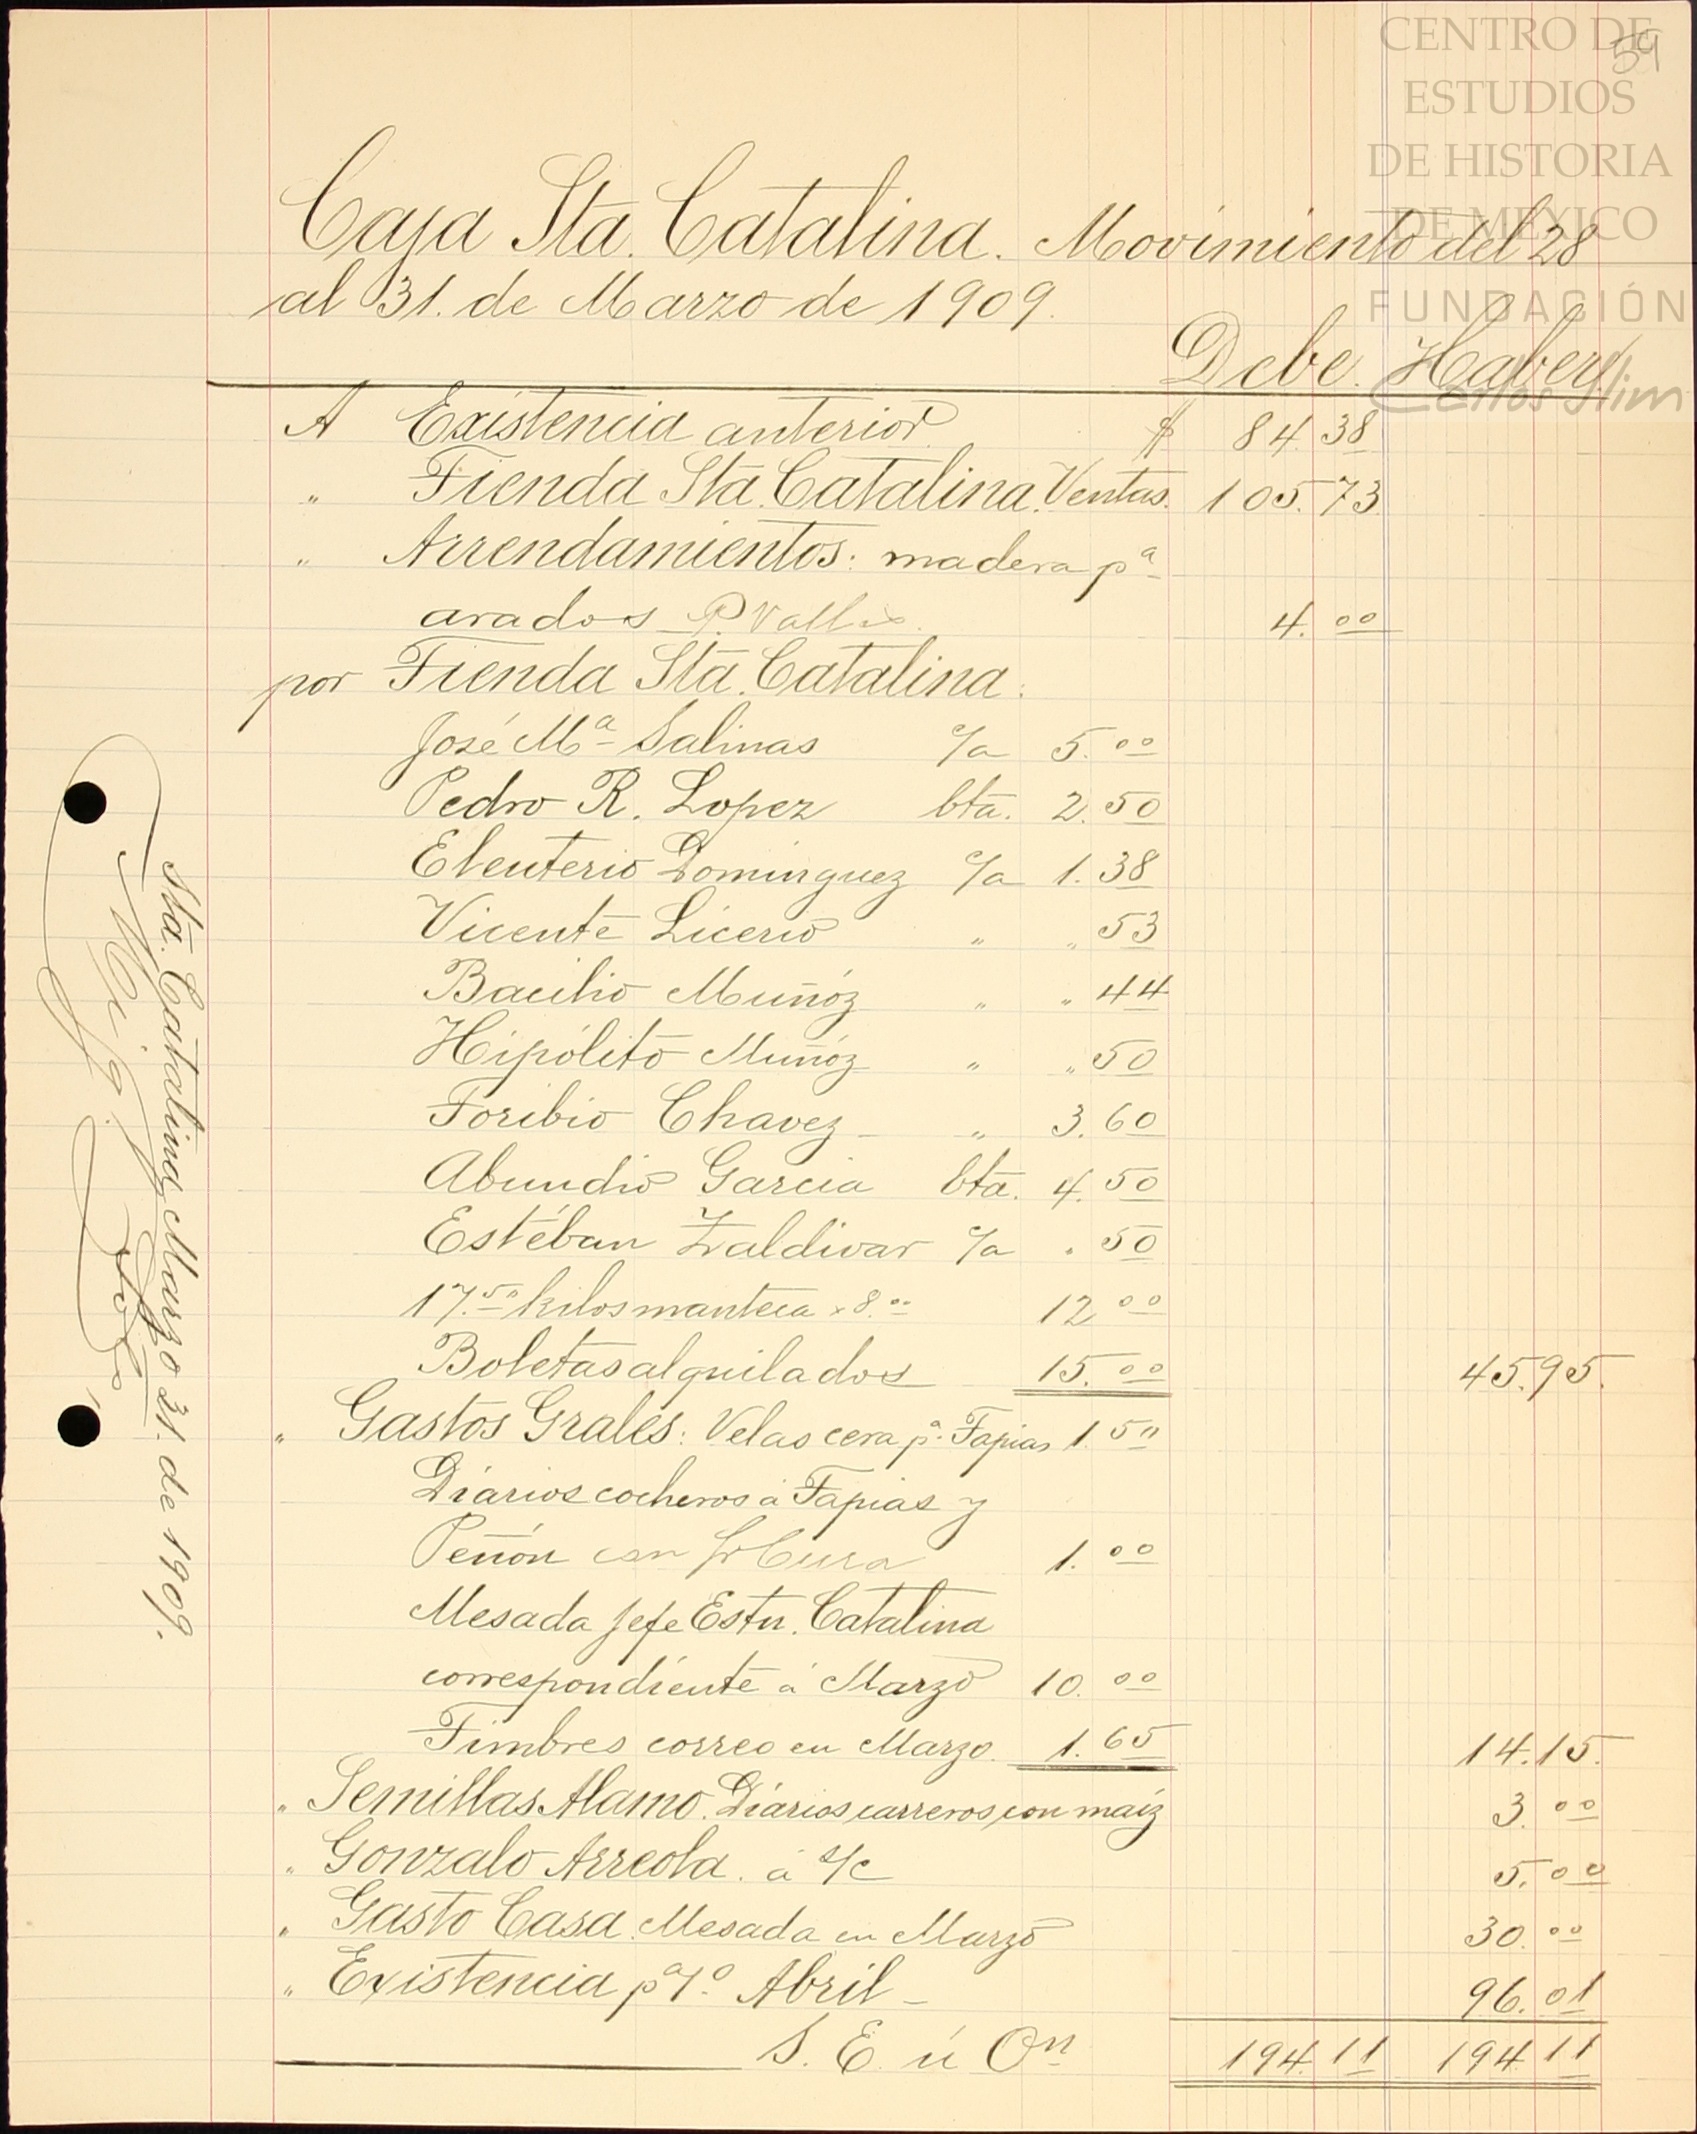 59
CENTRO DE
ESTUDIOS
DE HISTORIA
DE MEXICO
FUNDACIÓN
Carlos Slim
Caja Sta. Catalina. Movimiento del 28
al 31. de Marzo de 1909.
Debe. Haber
A Existencia anterior $ 84.38
" Tienda Sta. Catalina. Ventas. 105.73
" Arrendamientos: madera pª
arados P. 4.00
por Tienda Sta. Catalina:
José Mª Salinas c/a 5.00
Pedro R. Lopez bta. 2.50
Eleuterio Dominguez c/a 1.38
Vicente Licerio " " 53
Bacilio Muñóz " " 44
Hipólito Muñóz " " 50
Toribio Chavez " 3.60
Abundio Garcia bta. 4.50
Estéban Zaldivar c/a " 50
17.50 kilos manteca x 8.00 12.00
Boletas alquilados 15.00 45.95.
" Gastos Grales: Velas cera pª. Tapias 1.50
Diarios cocheros á Tapias y
Peñón con Sr Cura 1.00
Mesada Jefe Estn. Catalina
correspondiente á Marzo 10.00
Timbres correo en Marzo. 1.65 14.15.
" Semillas Alamo. Diarios carreros con maíz 3.00
" Gonzalo Arreola. á s/c 5.00
" Gasto Casa. Mesada en Marzo 30.00
" Existencia pª 1º. Abril 96.01
S. E. ú On 194.11 194.11
Sta. Catalina, Marzo 31. de 1909.